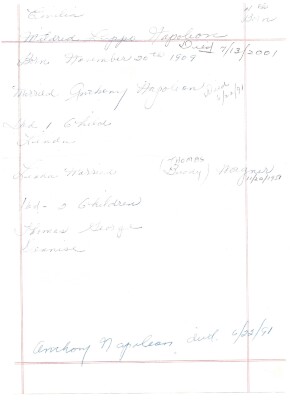 Emilia
Mildred Zuppo Napoleon
Died 7/13/2001
Born November 20th 1909
Married Anthony Napoleon Died 6/22/91
Had 1 Child
Linda
Linda Married (Thomas Buddy) Wagner
Had 2 Children
Thomas George
Denise
Anthony Napoleon died 6/22/91